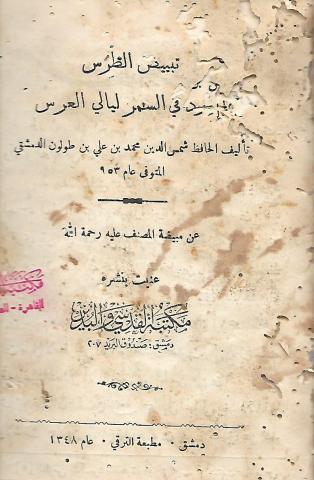 تبييض الطرس
في السمر ليالي العرس
تأليف الحافظ شمس الدين محمد بن علي بن طولون الدمشقي
المتوفى عام ٩٥٣
عن مبيضة المصنف عليه رحمة الله
عنيت بنشره
مكتبة القدسي والبدير
دمشق: صندوق البريد ٢٠٧
القاهرة
دمشق • مطبعة الترقي • عام ١٣٤٨